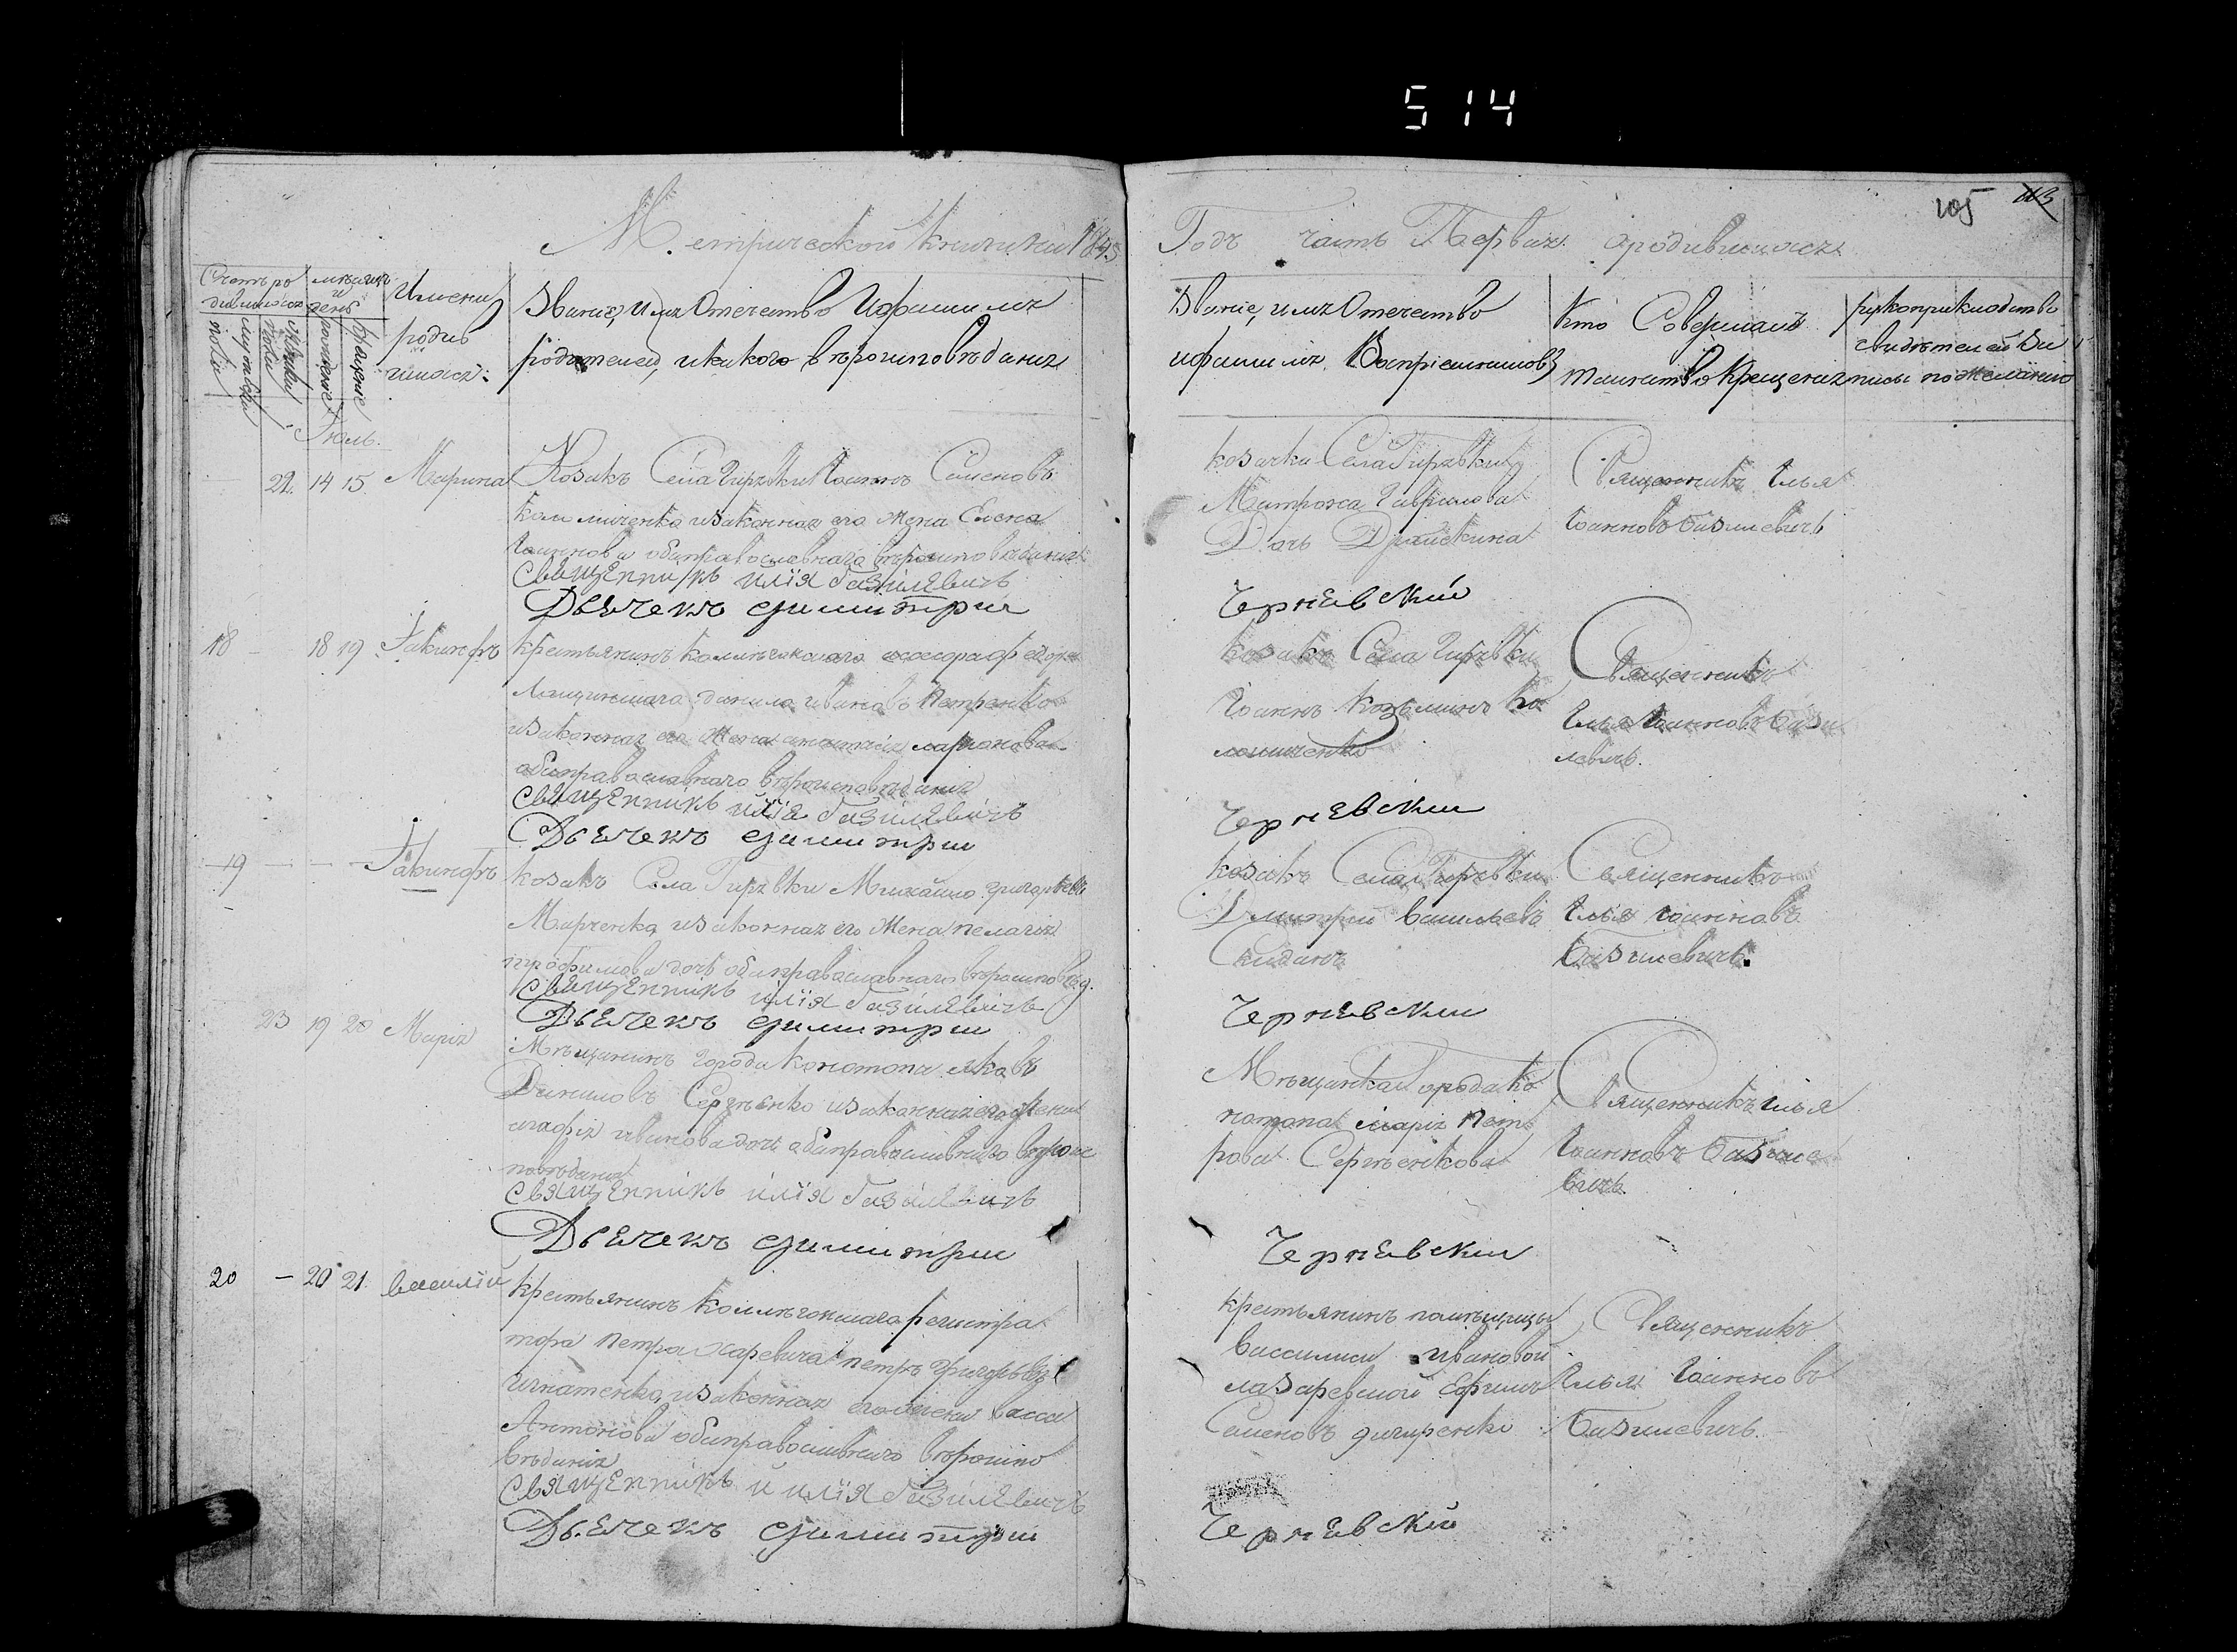 514
105 113
Метрической книги на 1843
Годъ часть Первая о родившихся
Счетъ ро
дившихся
мѣсяцъ
и
день
Имена
родив
шихся:
Званіе, Имя Отечество И фамилія
родителей, и какого вѣроисповѣданія
Званіе, имя Отечество
и фамилія Воспріемниковъ
Кто Совершалъ
таинство Крещенія
рукоприкладство
свидѣтелей за
писи по желанію
мужска
пола
женска
рожденіе
крещеніе
Іюль.
21. 14 15 Марина
Козакъ Села Гирявки Іоаннъ Семеновъ
Коломіиченко и законная его жена Елена
Іоаннова оба православнаго вѣроисповѣданія
Священникъ Илія Базилевичъ
Дьячекъ Димитрий
козачка Села Гирявки
Матрона Гаврилова
Дочь
Священникъ Илья
Іоанновъ Базилевичъ
Чернявский
18 - 18 19 Іакинфъ
крестьянинъ колижскаго
данила Иванова Петренко
и законная его Жена ларионова
оба православнаго вѣроисповѣданія
Священникъ Илія Базилевичъ
Дьячекъ Димитрий
козакъ Села Гирявки
Іоаннъ Козьминъ Ко
ломиченко
Священникъ
Илья Іоанновъ Бази
левичъ.
Чернявский
19 - - - Іакинфъ
козакъ Села Гирявки Михайло григорьевъ
Марченко, и законная его Жена пелагія
трофимова дочь оба православнаго вѣроисповѣд.
Священникъ Илія Базилевичъ
Дьячекъ Димитрий
козакъ Села Гирявки
Дмитрий васильевъ
Священникъ
Илья Іоанновъ
Базилевичъ.
Чернявский
23 19 20 Марія
Мѣщанинъ города Конотопа Яковъ
Даниловъ Сергѣенко и законная его Жена
агафія иванова дочь оба православнаго вѣроис
повѣданія
Священникъ Илія Базилевичъ
Дьячекъ Димитрий
Мѣщанка города Ко
нотопа Марія Пет
рова Сергѣенкова
Священникъ Илья
Іоанновъ Базиле
вичъ.
Чернявский
20 - 20 21. василій
крестьянинъ Коллѣжскаго регистра
тора петра петръ григорьевъ
Игнатенко, и законная его жена васса
Антонова оба православнаго вѣроиспо
вѣданія
Священникъ Илія Базилевичъ
Дьячекъ Димитрий
крестьянинъ помѣщицы
вассилиси ивановой
лазаревичой Ефимъ
Семеновъ
Священникъ
Илья Іоанновъ
Базилевичъ.
Чернявский